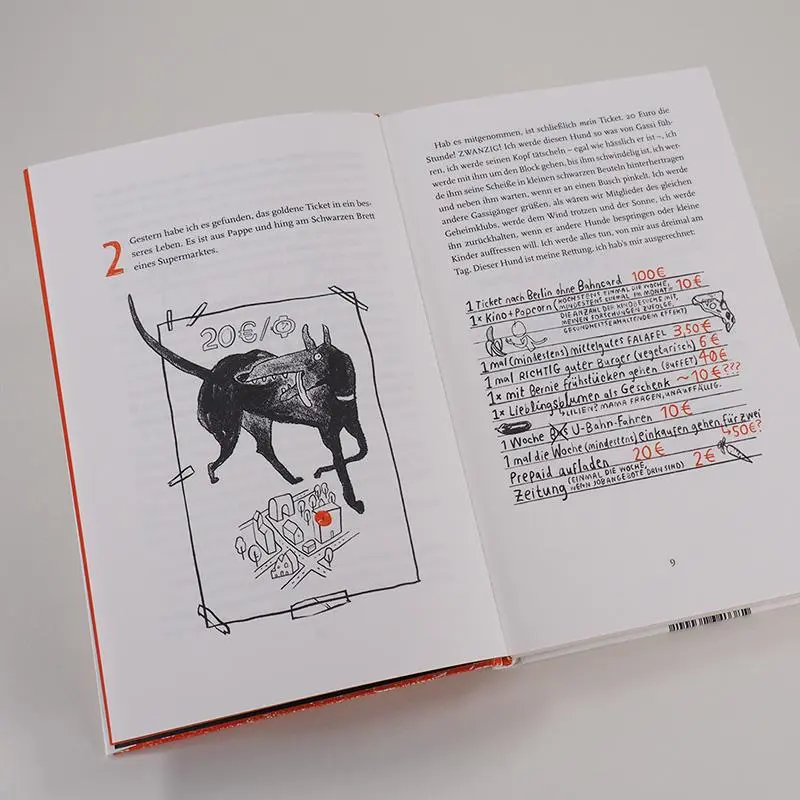 2
Gestern habe ich es gefunden, das goldene Ticket in ein bes-
seres Leben. Es ist aus Pappe und hing am Schwarzen Brett
eines Supermarktes.
20€/
Hab es mitgenommen, ist schließlich mein Ticket. 20 Euro die
Stunde! ZWANZIG! Ich werde diesen Hund so was von Gassi füh-
ren, ich werde seinen Kopf tätscheln – egal wie hässlich er ist –, ich
werde mit ihm um den Block gehen, bis ihm schwindelig ist, ich wer-
de ihm seine Scheiße in kleinen schwarzen Beuteln hinterhertragen
und neben ihm warten, wenn er an einen Busch pinkelt. Ich werde
andere Gassigänger grüßen, als wären wir Mitglieder des gleichen
Geheimklubs, werde dem Wind trotzen und der Sonne, ich werde
ihn zurückhalten, wenn er andere Hunde bespringen oder kleine
Kinder auffressen will. Ich werde alles tun, von mir aus dreimal am
Tag. Dieser Hund ist meine Rettung, ich hab's mir ausgerechnet:
1 Ticket nach Berlin ohne Bahncard 100€
1x Kino + Popcorn (HÖCHSTENS EINMAL DIE WOCHE, 10€
MINDESTENS EINMAL IM MONAT =
DIE ANZAHL DER KINOBESUCHE MIT,
MEINEN FORSCHUNGEN ZUFOLGE,
GESUNDHEITSERHALTENDEM EFFEKT)
1 mal (mindestens) mittelgutes FALAFEL 3,50€
1 mal RICHTIG guter Burger (vegetarisch) 6€
1x mit Bernie frühstücken gehen (BUFFET) 40€
1x Lieblingsblumen als Geschenk ~10€???
LILIEN? MAMA FRAGEN, UNAUFFÄLLIG.
1 Woche U-Bahn-Fahren 10€
1 mal die Woche (mindestens) einkaufen gehen für zwei
50€?
Prepaid aufladen 20€
Zeitung (EINMAL DIE WOCHE, 2€
WENN JOBANGEBOTE DRIN SIND)
9